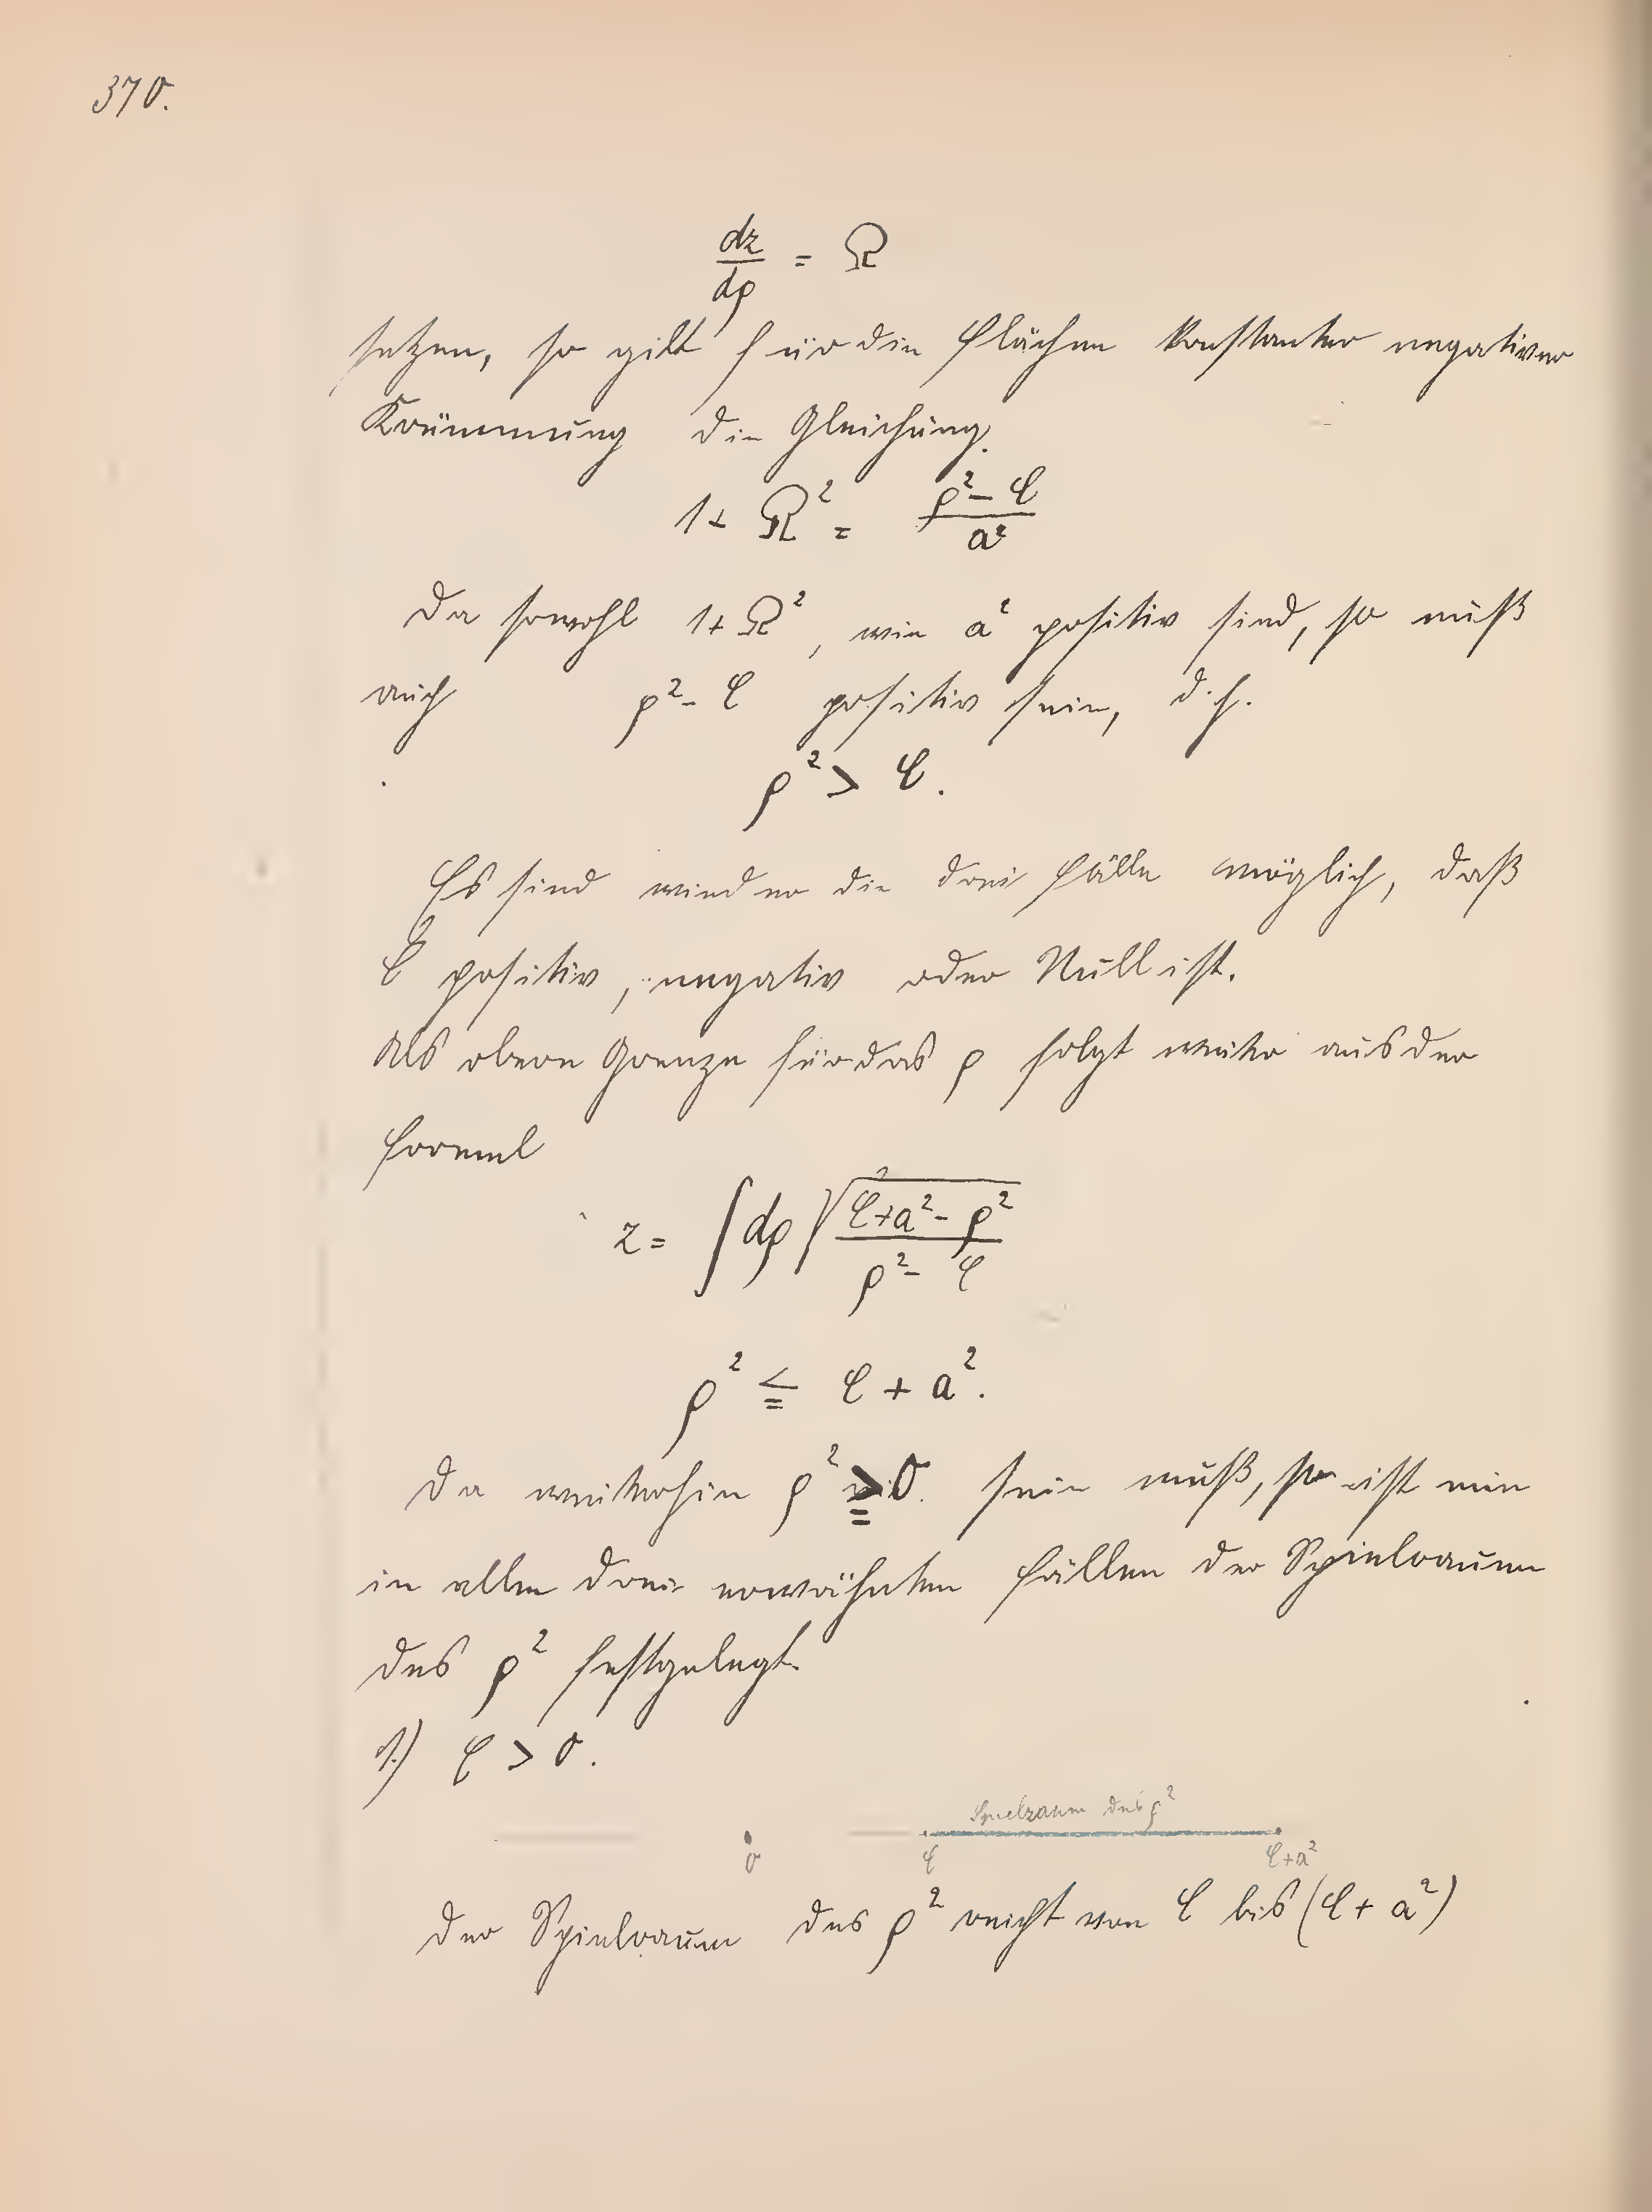 370.
dz/dρ = Ω
setzen, so gilt für die Flächen konstanter negativer
Krümmung die Gleichung.
1 + Ω² = (ρ² - C)/a²
Da sowohl 1 + Ω², wie a² positiv sind, so muß
auch ρ² - C positiv sein, d.h.
ρ² > C.
Es sind wieder die drei Fälle möglich, daß
C positiv, negativ oder Null ist.
Als obere Grenze für das ρ folgt weiter aus der
Formel
z = ∫ dρ √((C + a² - ρ²)/(ρ² - C))
ρ² ≦ C + a².
Da weiterhin ρ² ≧ 0. sein muß, so ist nun
in allen drei erwähnten Fällen der Spielraum
des ρ² festgelegt.
1.) C > 0.
Spielraum des ρ²
0 C C+a²
Der Spielraum des ρ² reicht von C bis (C + a²)